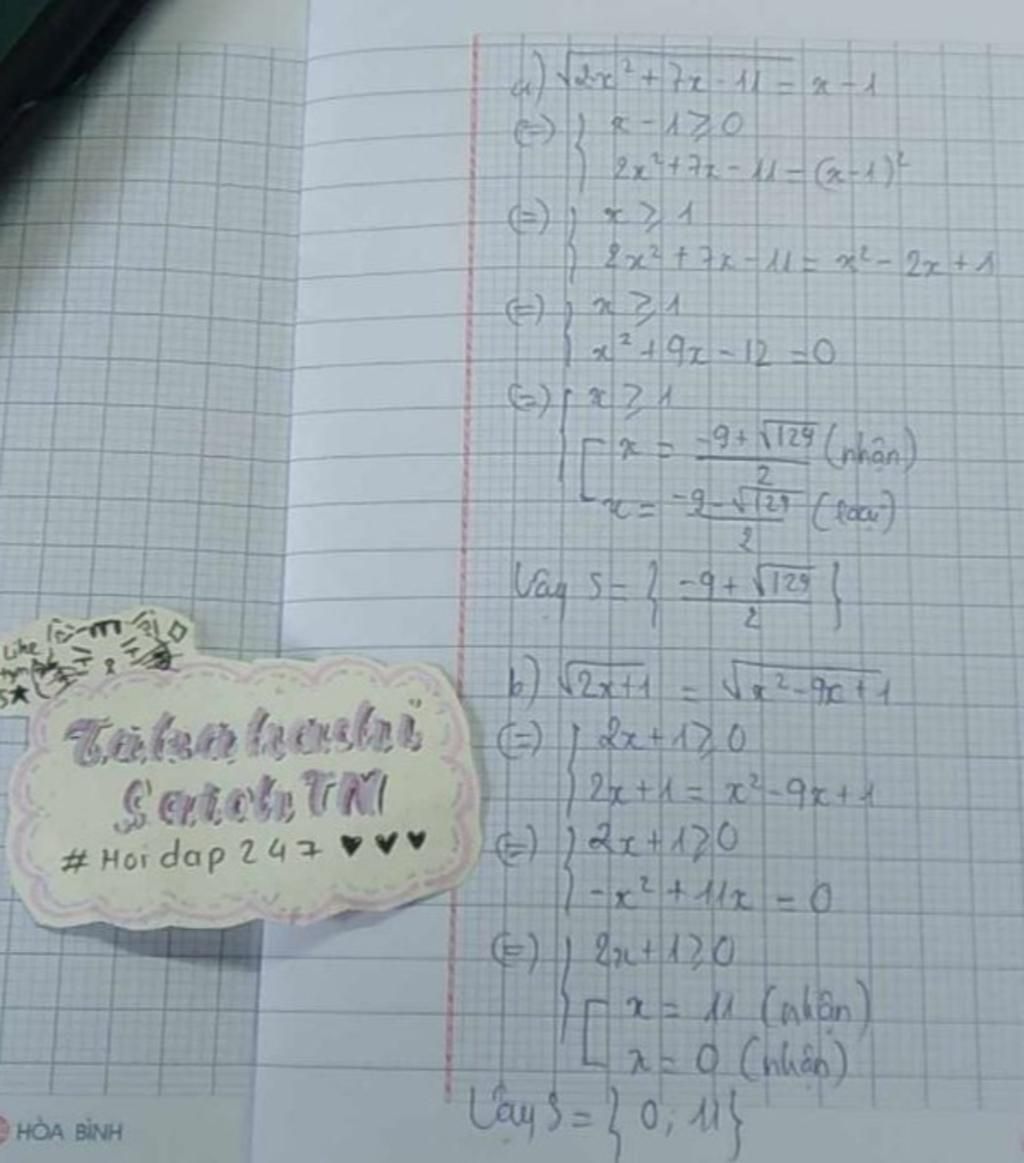 a) √(2x² + 7x - 11) = x - 1
(=) { x - 1 ≥ 0
2x² + 7x - 11 = (x - 1)²
(=) { x ≥ 1
2x² + 7x - 11 = x² - 2x + 1
(=) { x ≥ 1
x² + 9x - 12 = 0
(=) { x ≥ 1
[ x = (-9 + √129)/2 (nhận)
x = (-9 - √129)/2 (loại)
Vậy S = { (-9 + √129)/2 }
b) √(2x + 1) = √(x² - 9x + 1)
(=) { 2x + 1 ≥ 0
2x + 1 = x² - 9x + 1
(=) { 2x + 1 ≥ 0
-x² + 11x = 0
(=) { 2x + 1 ≥ 0
[ x = 11 (nhận)
x = 0 (nhận)
Vậy S = { 0; 11 }
Like
5★
TM
# Hoidap 247 ♥ ♥ ♥
HÒA BÌNH